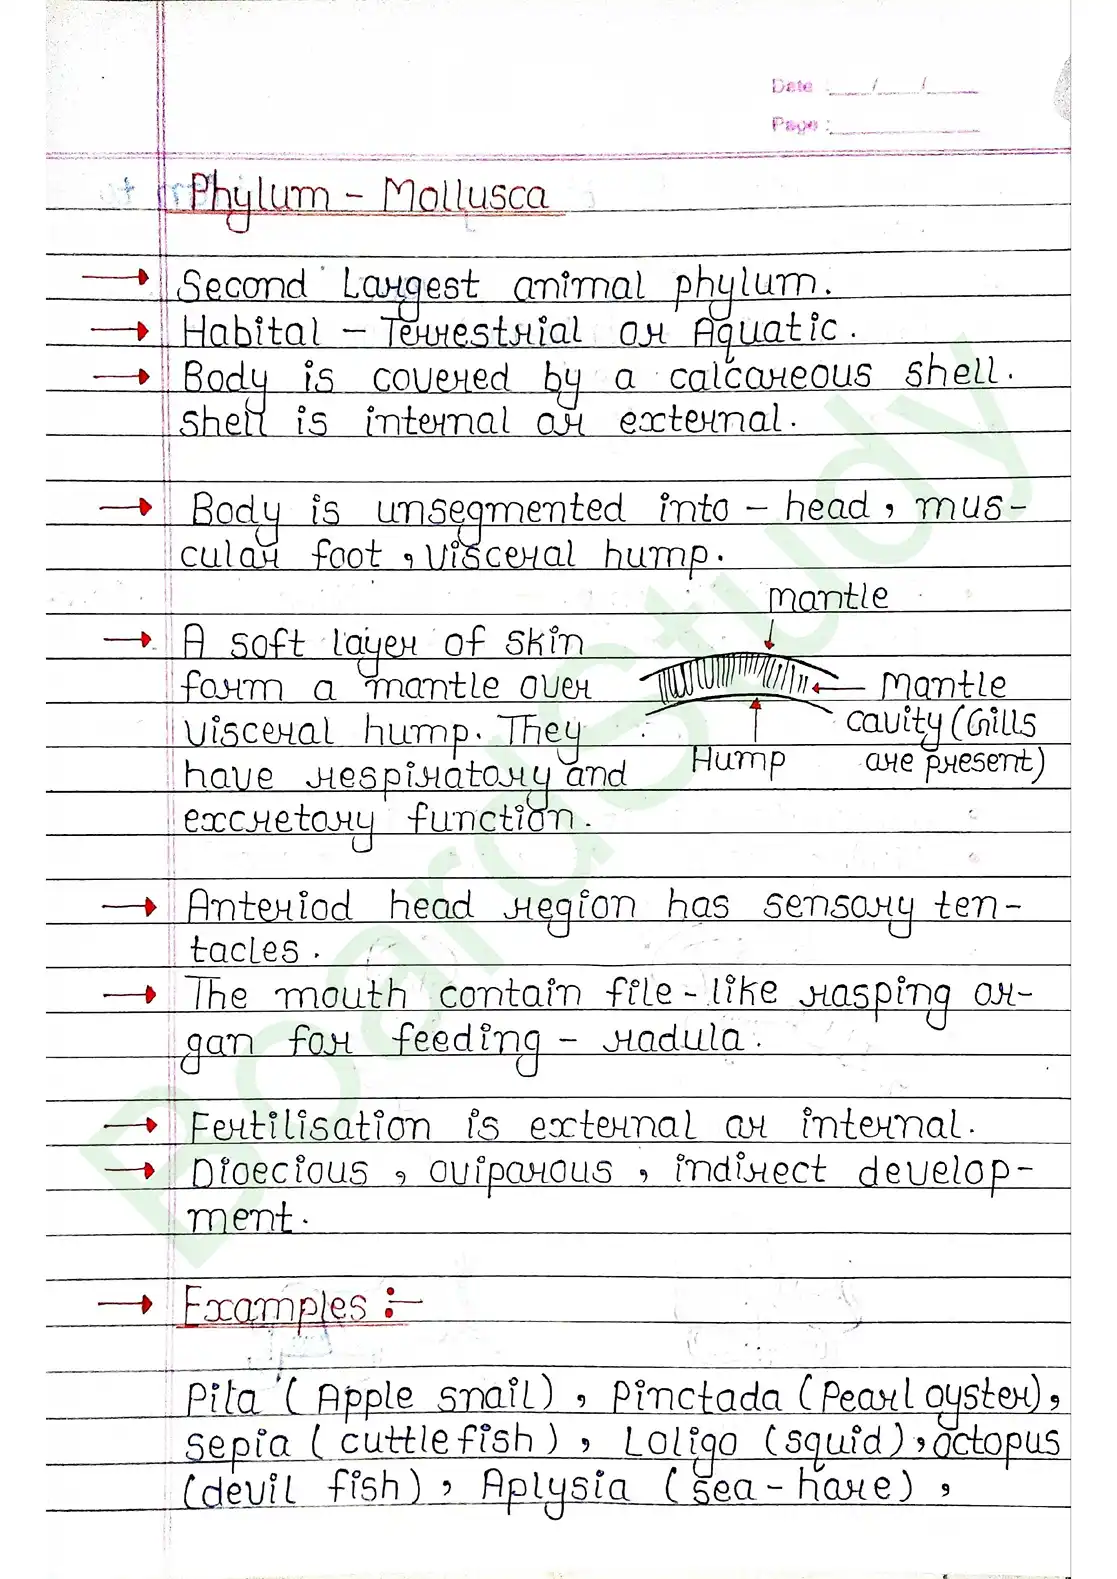 Date : __/__/__
Page : ______
Phylum - Mollusca
→ Second Largest animal phylum.
→ Habital - Terrestrial or Aquatic.
→ Body is covered by a calcareous shell.
shell is internal or external.
→ Body is unsegmented into - head, mus-
cular foot, visceral hump.
→ A soft layer of skin
form a mantle over
visceral hump. They
have respiratory and
excretory function.
mantle
Mantle
cavity (Gills
are present)
Hump
→ Anteriod head region has sensory ten-
tacles.
→ The mouth contain file-like rasping or-
gan for feeding - radula.
→ Fertilisation is external or internal.
→ Dioecious, oviparous, indirect develop-
ment.
→ Examples :-
Pila (Apple snail), Pinctada (Pearl oyster),
Sepia (cuttle fish), Loligo (squid), octopus
(devil fish), Aplysia (sea-hare),
BoardStudy